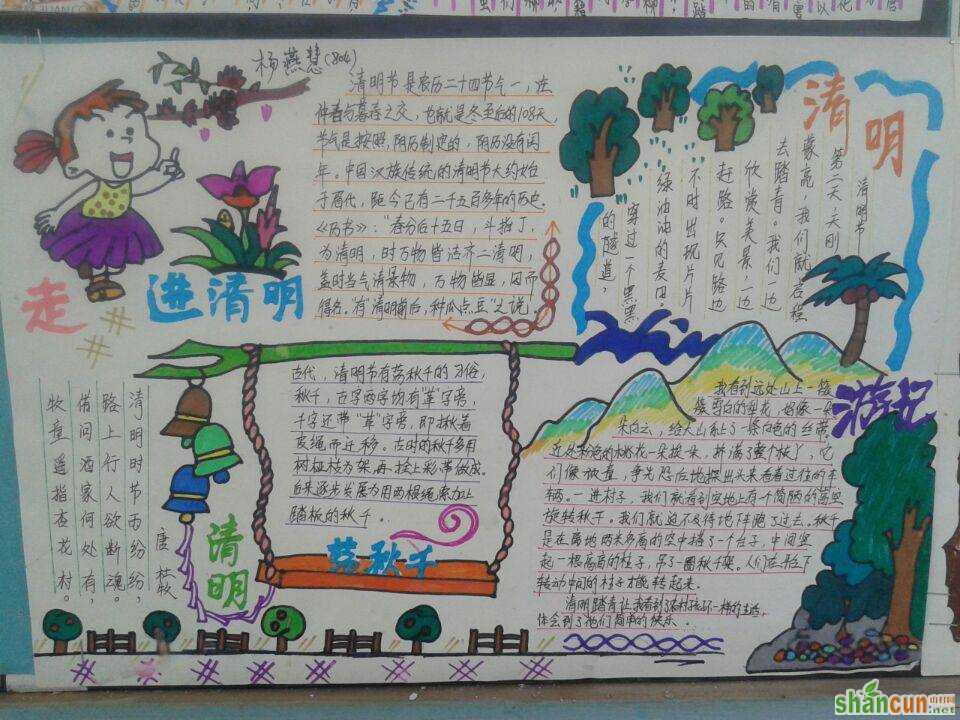 杨燕慧(804)
走进清明
清明节是农历二十四节气一,在
仲春与暮春之交,也就是冬至后的108天,
节气是按照阴历制定的,阴历没有闰
年。中国汉族传统的清明节大约始
于周代,距今已有二千五百多年的历史。
《历书》:"春分后十五日,斗指丁,
为清明,时万物皆洁齐
清明,
盖时当气清景
物,万物皆显,因而
得名。有"清明前后,种瓜点豆"之说。
清明
清明节
第二天,天刚
蒙亮,我们就启程
去踏青。我们一边
欣赏美景,一边
赶路。只见路边
不时出现片片
绿油油的麦田。
穿过一个黑黑
的隧道,
清明时节雨纷纷,
路上行人欲断魂。
借问酒家何处有,
牧童遥指杏花村。
唐 杜牧
清明
古代,清明节有荡秋千的习俗,
秋千,古字两字均有"革"字旁,
千字还带"革"字旁,即揪着
皮绳而迁移。古时的秋千多用
树桠枝为架,再拴上彩带做成。
后来逐步发展为用两根绳索加上
踏板的秋千.
荡秋千
游记
我看到远处山上一簇
簇雪白的梨花,好像一
朵白云,给大山系上了一条白色的丝带。
近处粉色的桃花一朵挨一朵,挤满了整个枝丫,它
们像被
争先恐后地探出头来看看过往的车
辆。一进村子,我们就看到空地上有个简陋的高空
旋转秋千。我们就迫不及待地下
跑了过去。秋千
是在离地两米多高的空中搭了一个台子,中间竖
起一根高高的柱子,吊了一圈秋千架。人们在台下
转动中间的柱子才能转起来。
清明踏青让我看到了农村孩子不一样的生活,
体会到了他们简单的快乐.
shancun
山村网
.net